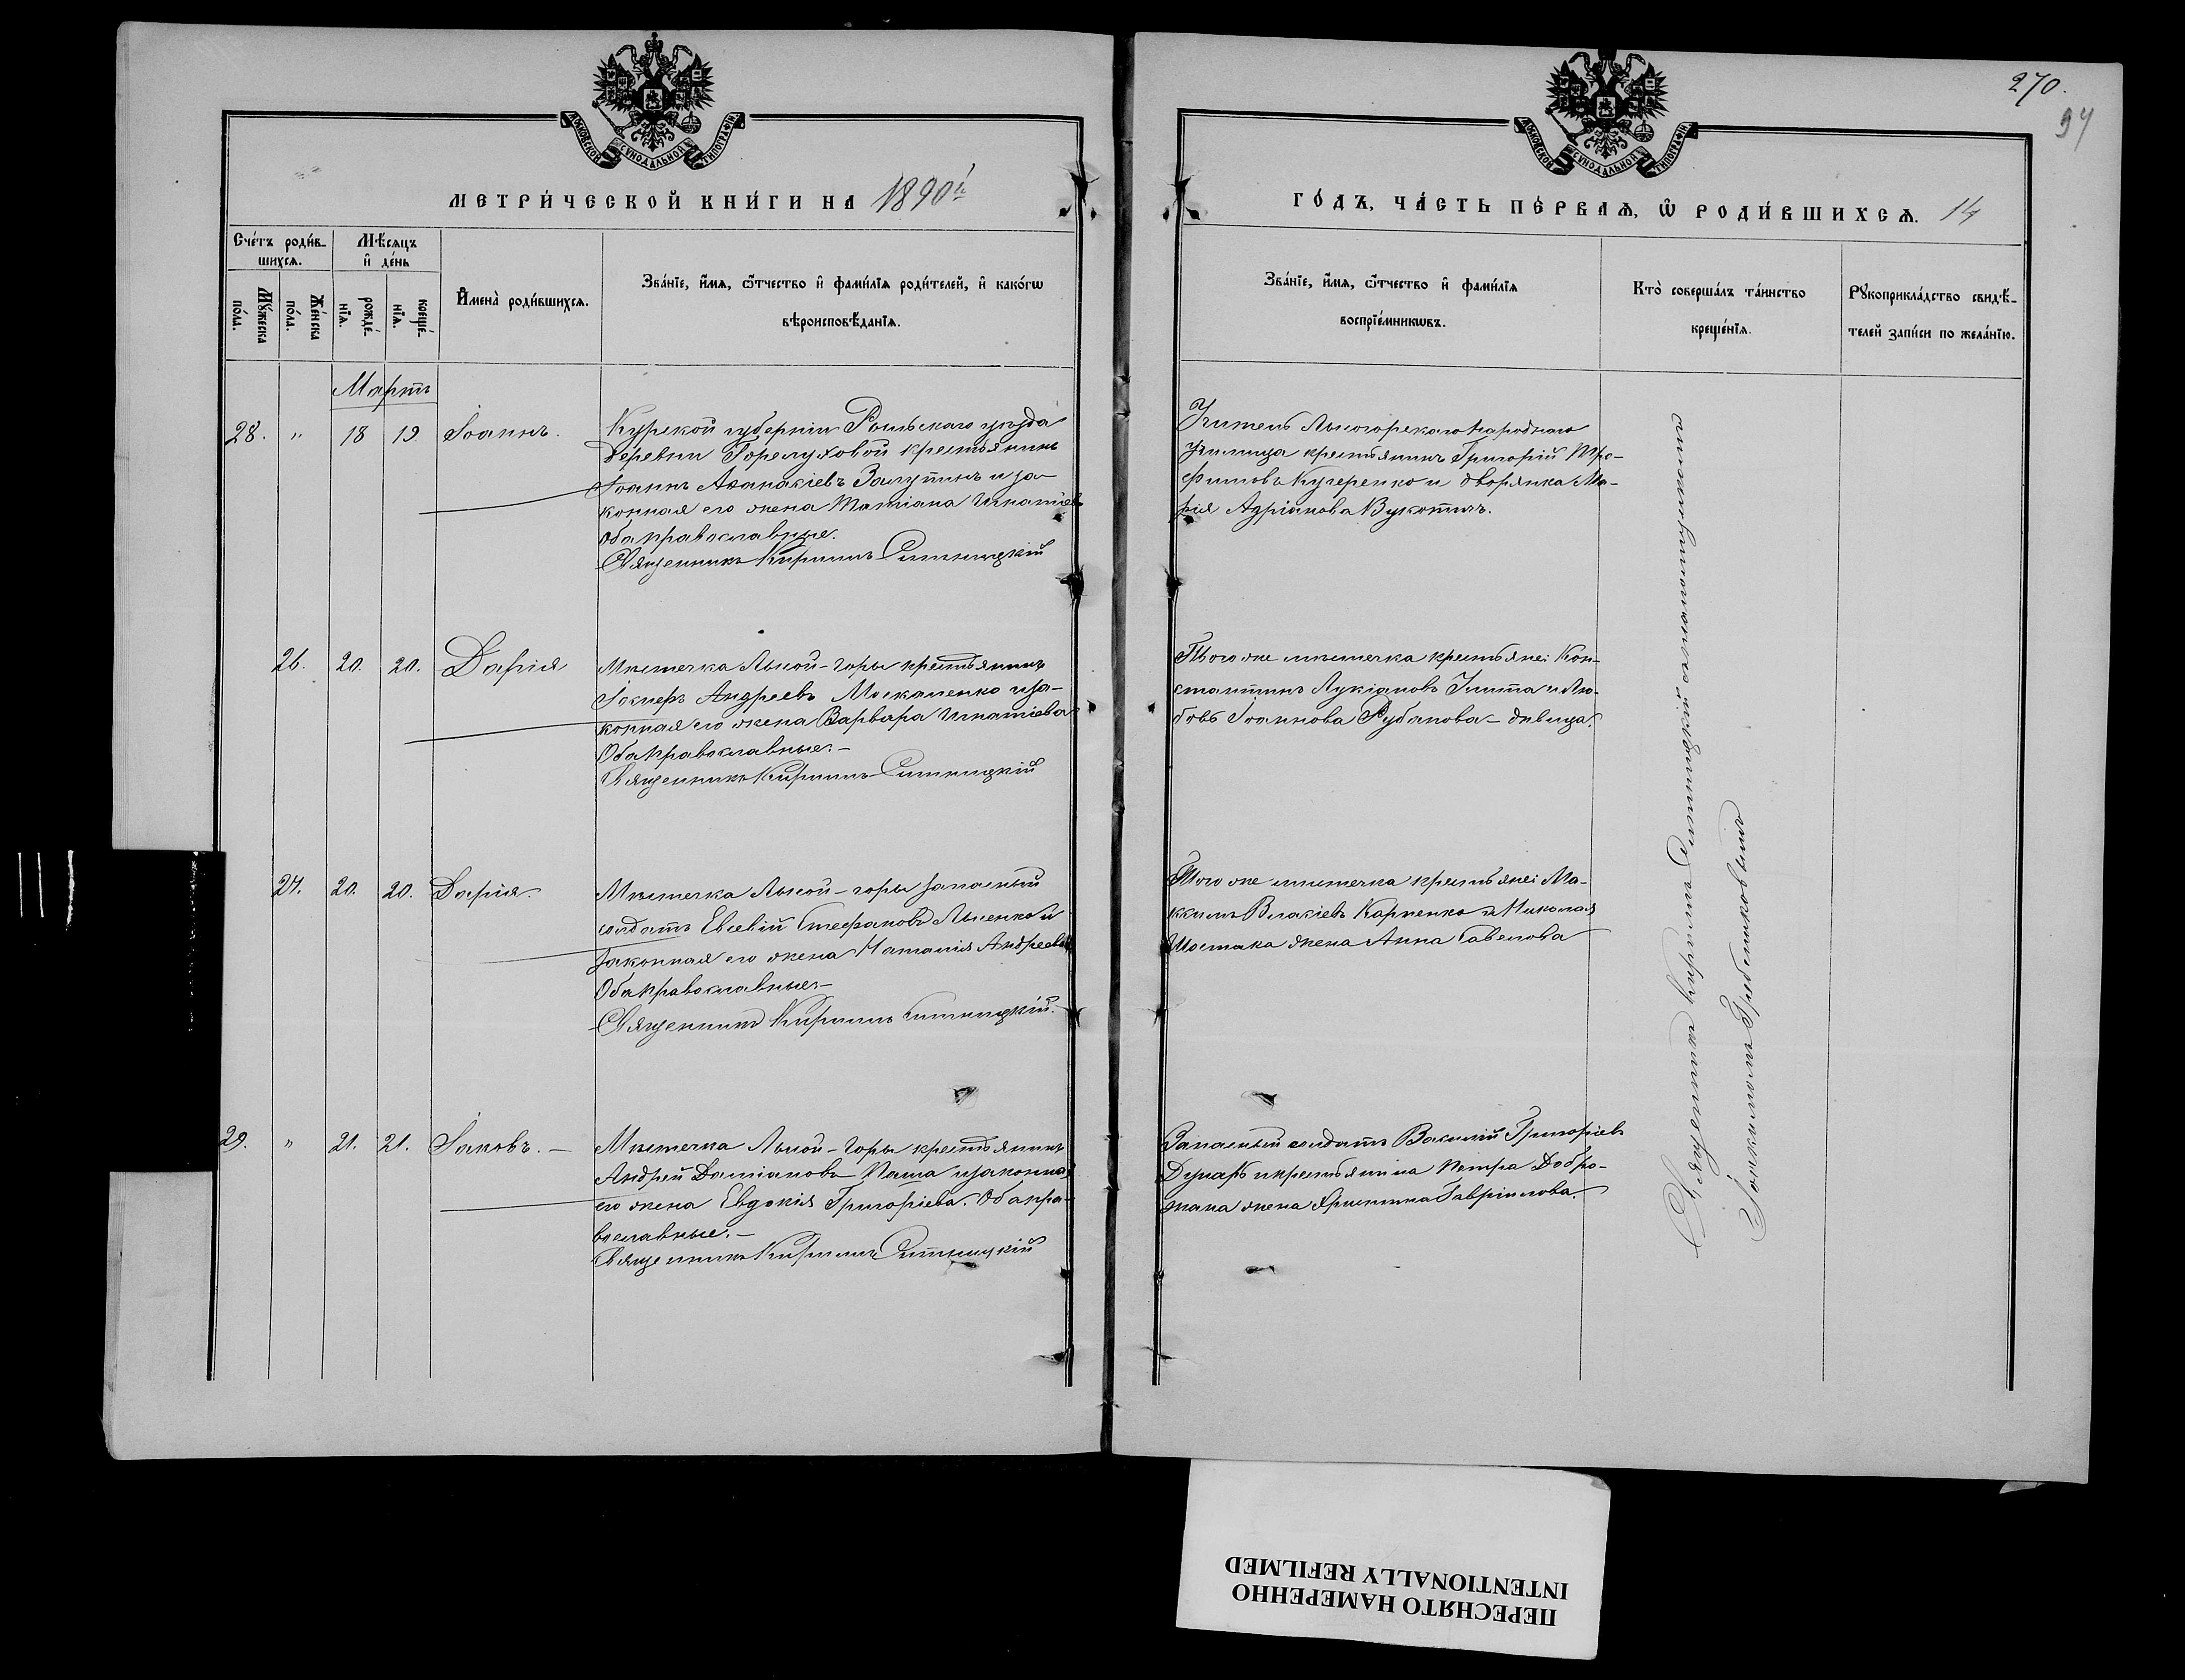 МОСКОВСКОЙ СѴНОДАЛЬНОЙ ТИПОГРАФІИ
МЕТРИ́ЧЕСКОЙ КНИ́ГИ НА 1890й
Сче́тъ роди́в-
шихсѧ.
Мѣ́сѧцъ
и҆ де́нь
Мꙋ́жеска
по́ла.
Же́нска
по́ла.
рожде́-
нїѧ.
креще́-
нїѧ.
И҆мена̀ роди́вшихсѧ.
Зва́нїе, и҆́мѧ, ѻ҆́тчество и҆ фами́лїѧ роди́телей, и҆ како́гѡ
вѣроисповѣ́данїѧ.
Мартъ
28. " 18 19 Іоаннъ.
Курской губерніи Рыльскаго уѣзда
деревни Горелуховой крестьянинъ
Іоаннъ Аѳанасіевъ Залутинъ и за-
конная его жена Татіана Игнатіева
Оба православные.
Священникъ Кириллъ Ситницкій
26. 20. 20. Дарія
Мѣстечка Лысой-горы крестьянинъ
Іосифъ Андреевъ Москаленко и за-
конная его жена Варвара Игнатіева
Оба православные.-
Священникъ Кириллъ Ситницкій
27. 20. 20. Дарія.
Мѣстечка Лысой-горы запасный
солдатъ Евсевій Стефановъ Лысенко и
законная его жена Наталія Андреева
Оба православные-
Священникъ Кириллъ Ситницкій.
29. " 21. 21. Іаковъ. -
Мѣстечка Лысой-Горы крестьянинъ
Андрей Даміановъ Паша и законная
его жена Евдокія Григоріева. Оба пра-
вославные. -
Священникъ Кириллъ Ситницкій
270.
94
МОСКОВСКОЙ СѴНОДАЛЬНОЙ ТИПОГРАФІИ
ГО́ДЪ, ЧА́СТЬ ПЕ́РВАѦ, Ѡ҆ РОДИ́ВШИХСѦ. 14
Зва́нїе, и҆́мѧ, ѻ҆́тчество и҆ фами́лїѧ
воспрїе́мникѡвъ.
Кто̀ соверша́лъ та́инство
креще́нїѧ.
Рꙋкоприкла́дство свидѣ́-
телей за́писи по жела́нїю.
Учитель Лысогорскаго народнаго
училища крестьянинъ Григорій Тро-
фимовъ Кучеренко и дворянка Ма-
рія Адріанова Вукотичъ.
Того же мѣстечка крестьяне: Кон-
стантинъ Лукіановъ и Лю-
бовь Іоаннова Рубанова - дѣвица.
Того же мѣстечка крестьяне: Ма-
ксимъ Власіевъ Карпенко и Николая
Шостака жена Анна Савелова
Запасный солдатъ Василій Григоріевъ
Дударь и крестьянина Петра Добро-
жана жена Христина Гавріилова.
Священникъ Кириллъ Ситницкій съ псаломщикомъ
Іоакимомъ Гребенниковымъ
ПЕРЕСНЯТО НАМЕРЕННО
INTENTIONALLY REFILMED